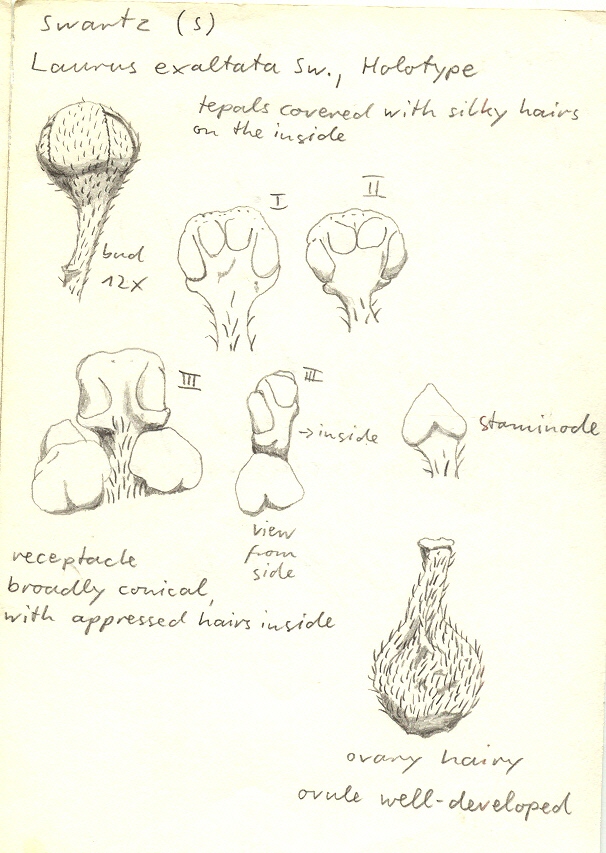 Swartz (S)
Laurus exaltata Sw., Holotype
tepals covered with silky hairs
on the inside
bud
12x
I
II
III
III
→ inside
staminode
view
from
side
receptacle
broadly conical,
with appressed hairs inside
ovary hairy
ovule well-developed